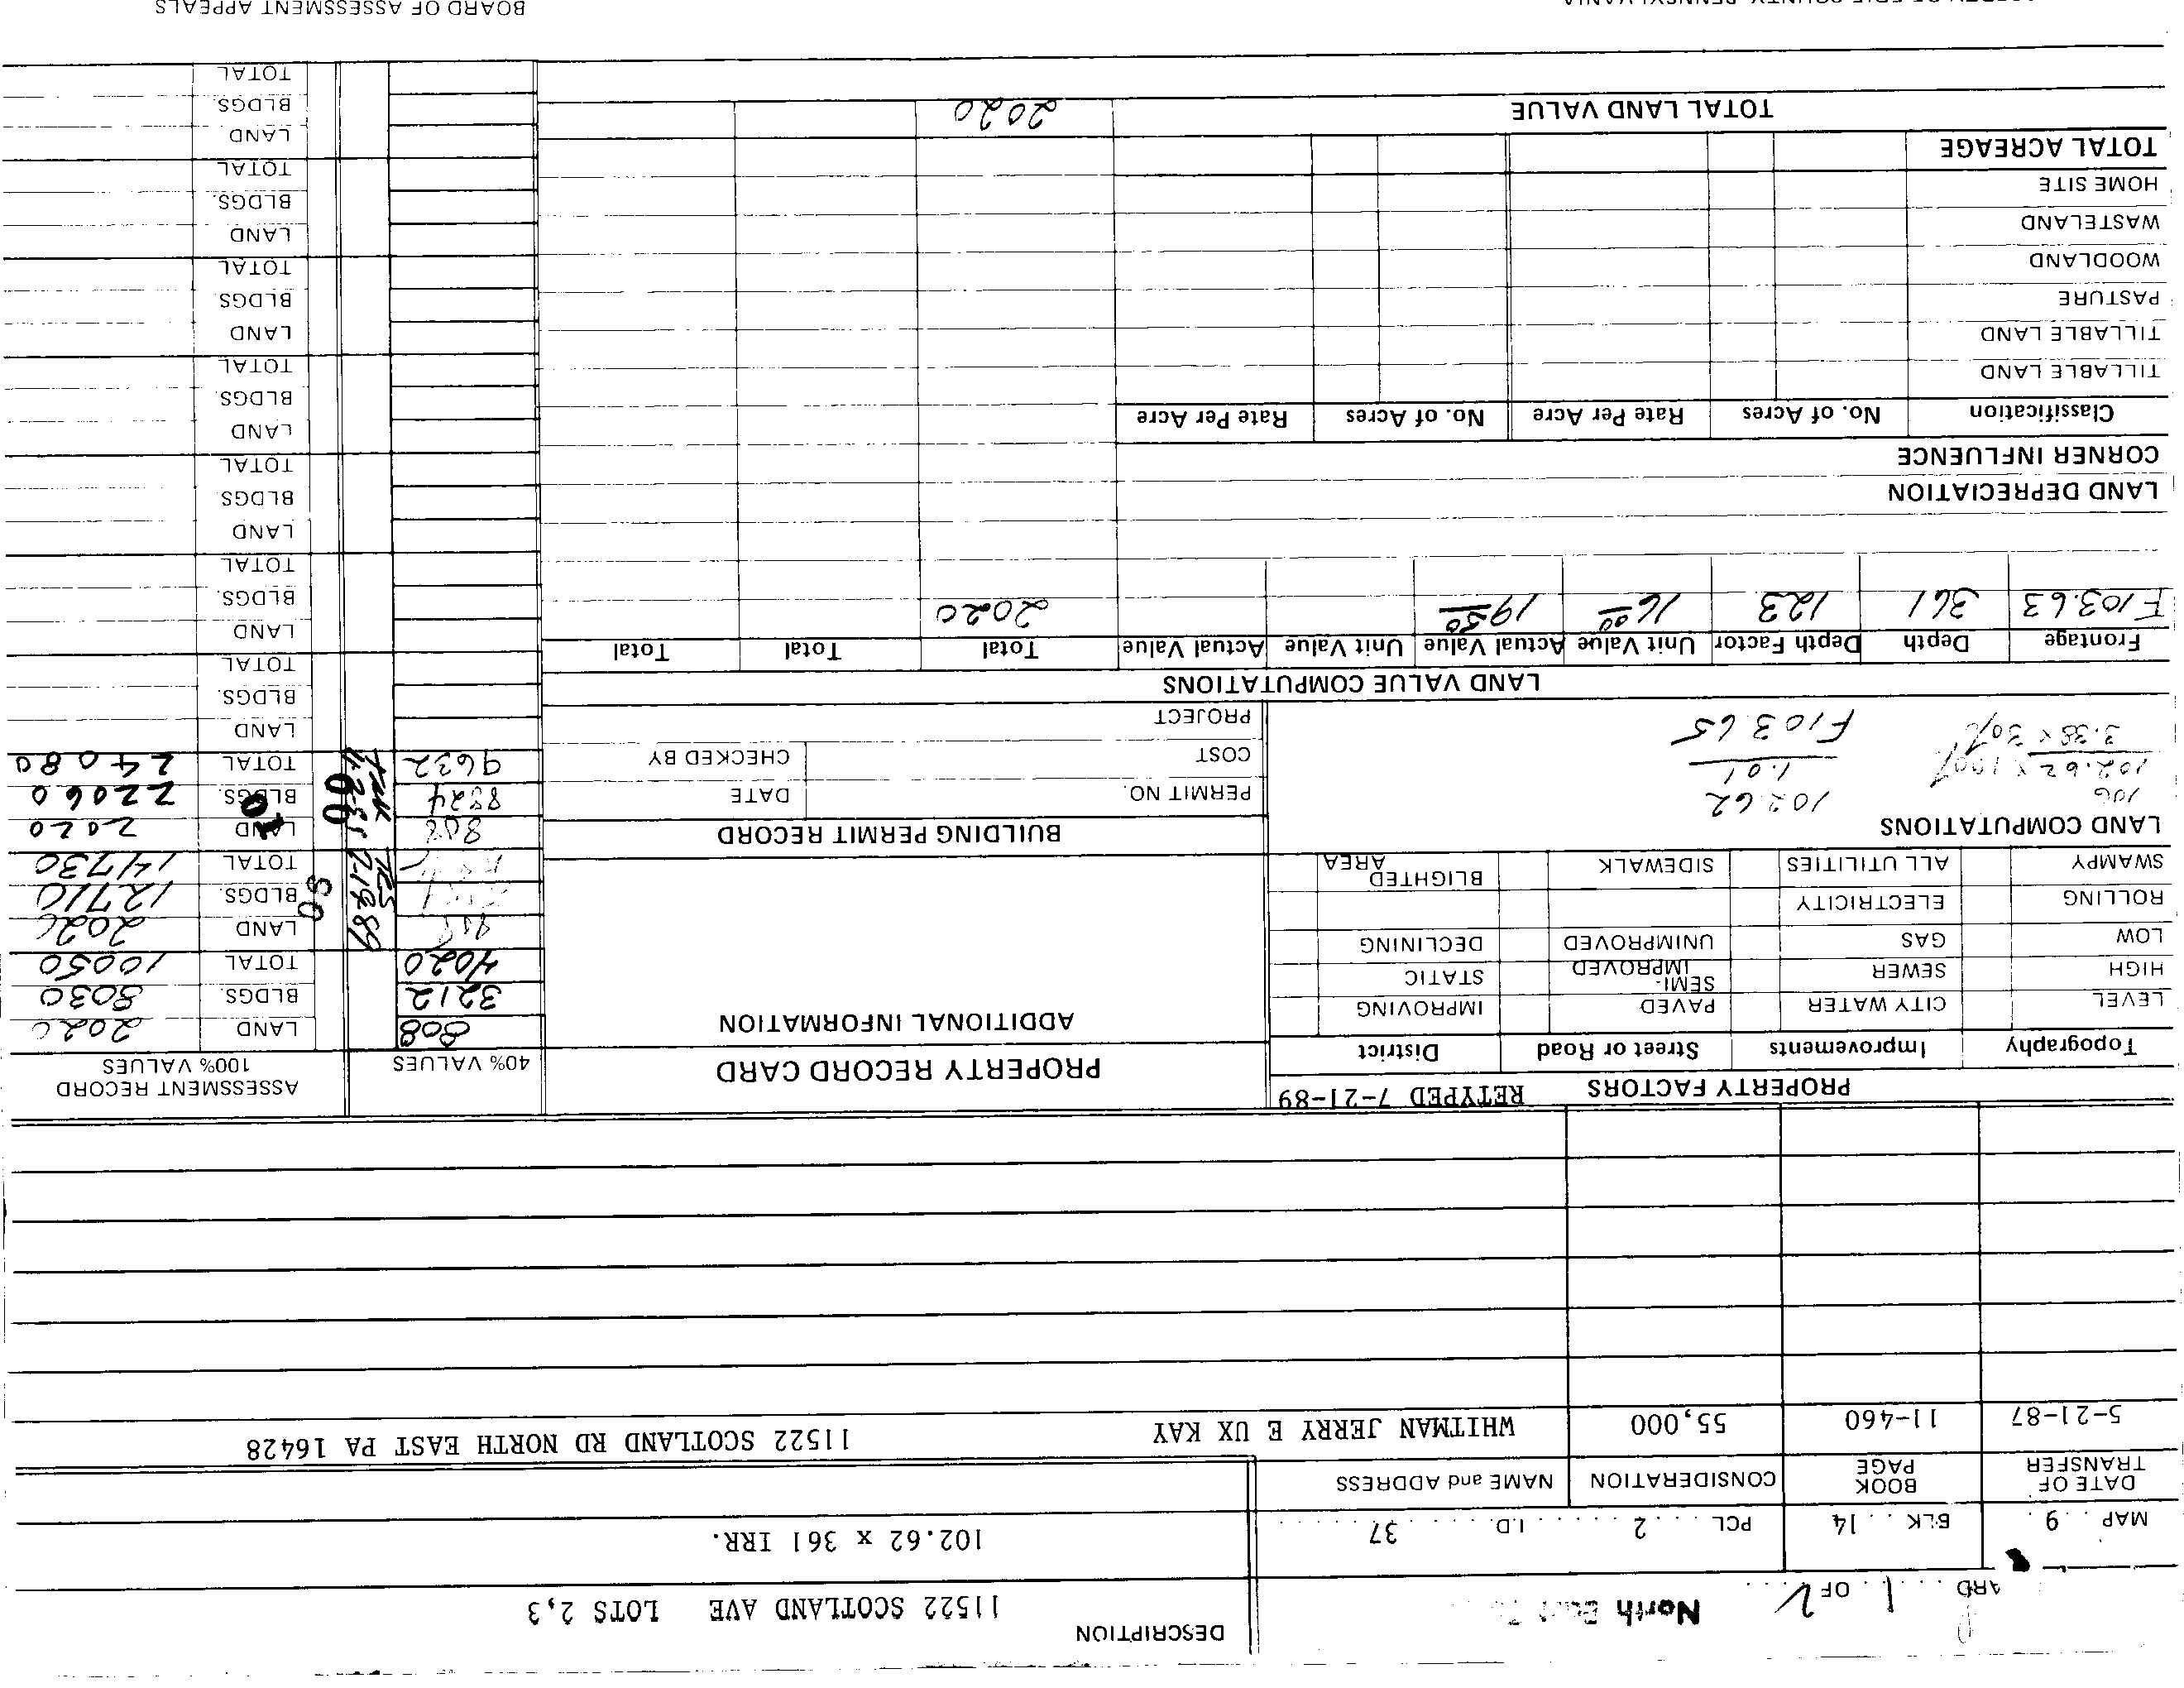 CARD 1 OF 2 North East
DESCRIPTION 11522 SCOTLAND AVE LOTS 2,3
102.62 x 361 IRR.
MAP 9 BLK 14 PCL 2 I.D. 37
DATE OF TRANSFER BOOK PAGE CONSIDERATION NAME and ADDRESS
5-21-87 11-460 55,000 WHITMAN JERRY E UX KAY 11522 SCOTLAND RD NORTH EAST PA 16428
PROPERTY FACTORS RETYPED 7-21-89
Topography Improvements Street or Road District
LEVEL CITY WATER PAVED IMPROVING
HIGH SEWER SEMI-IMPROVED STATIC
LOW GAS UNIMPROVED DECLINING
ROLLING ELECTRICITY
SWAMPY ALL UTILITIES SIDEWALK BLIGHTED AREA
LAND COMPUTATIONS
106
102.62 x 100%
3.38 x 30%
102.62
1.01
F103.65
PROPERTY RECORD CARD
ADDITIONAL INFORMATION
BUILDING PERMIT RECORD
PERMIT NO. DATE
COST CHECKED BY
PROJECT
40% VALUES ASSESSMENT RECORD 100% VALUES
808 LAND 2020
3212 BLDGS. 8030
4020 TOTAL 10050
808 LAND 2020
BLDGS. 12710
TOTAL 14730
808 LAND 2020
8824 BLDGS. 22060
9632 TOTAL 24080
LAND
BLDGS.
TOTAL
LAND
BLDGS.
TOTAL
LAND
BLDGS
TOTAL
LAND
BLDGS.
TOTAL
LAND
BLDGS.
TOTAL
LAND
BLDGS.
TOTAL
LAND
BLDGS.
TOTAL
LAND VALUE COMPUTATIONS
Frontage Depth Depth Factor Unit Value Actual Value Unit Value Actual Value Total Total Total
F103.63 361 123 16.00 19.50 2020
LAND DEPRECIATION
CORNER INFLUENCE
Classification No. of Acres Rate Per Acre No. of Acres Rate Per Acre
TILLABLE LAND
TILLABLE LAND
PASTURE
WOODLAND
WASTELAND
HOME SITE
TOTAL ACREAGE
TOTAL LAND VALUE 2020
COUNTY, PENNSYLVANIA BOARD OF ASSESSMENT APPEALS